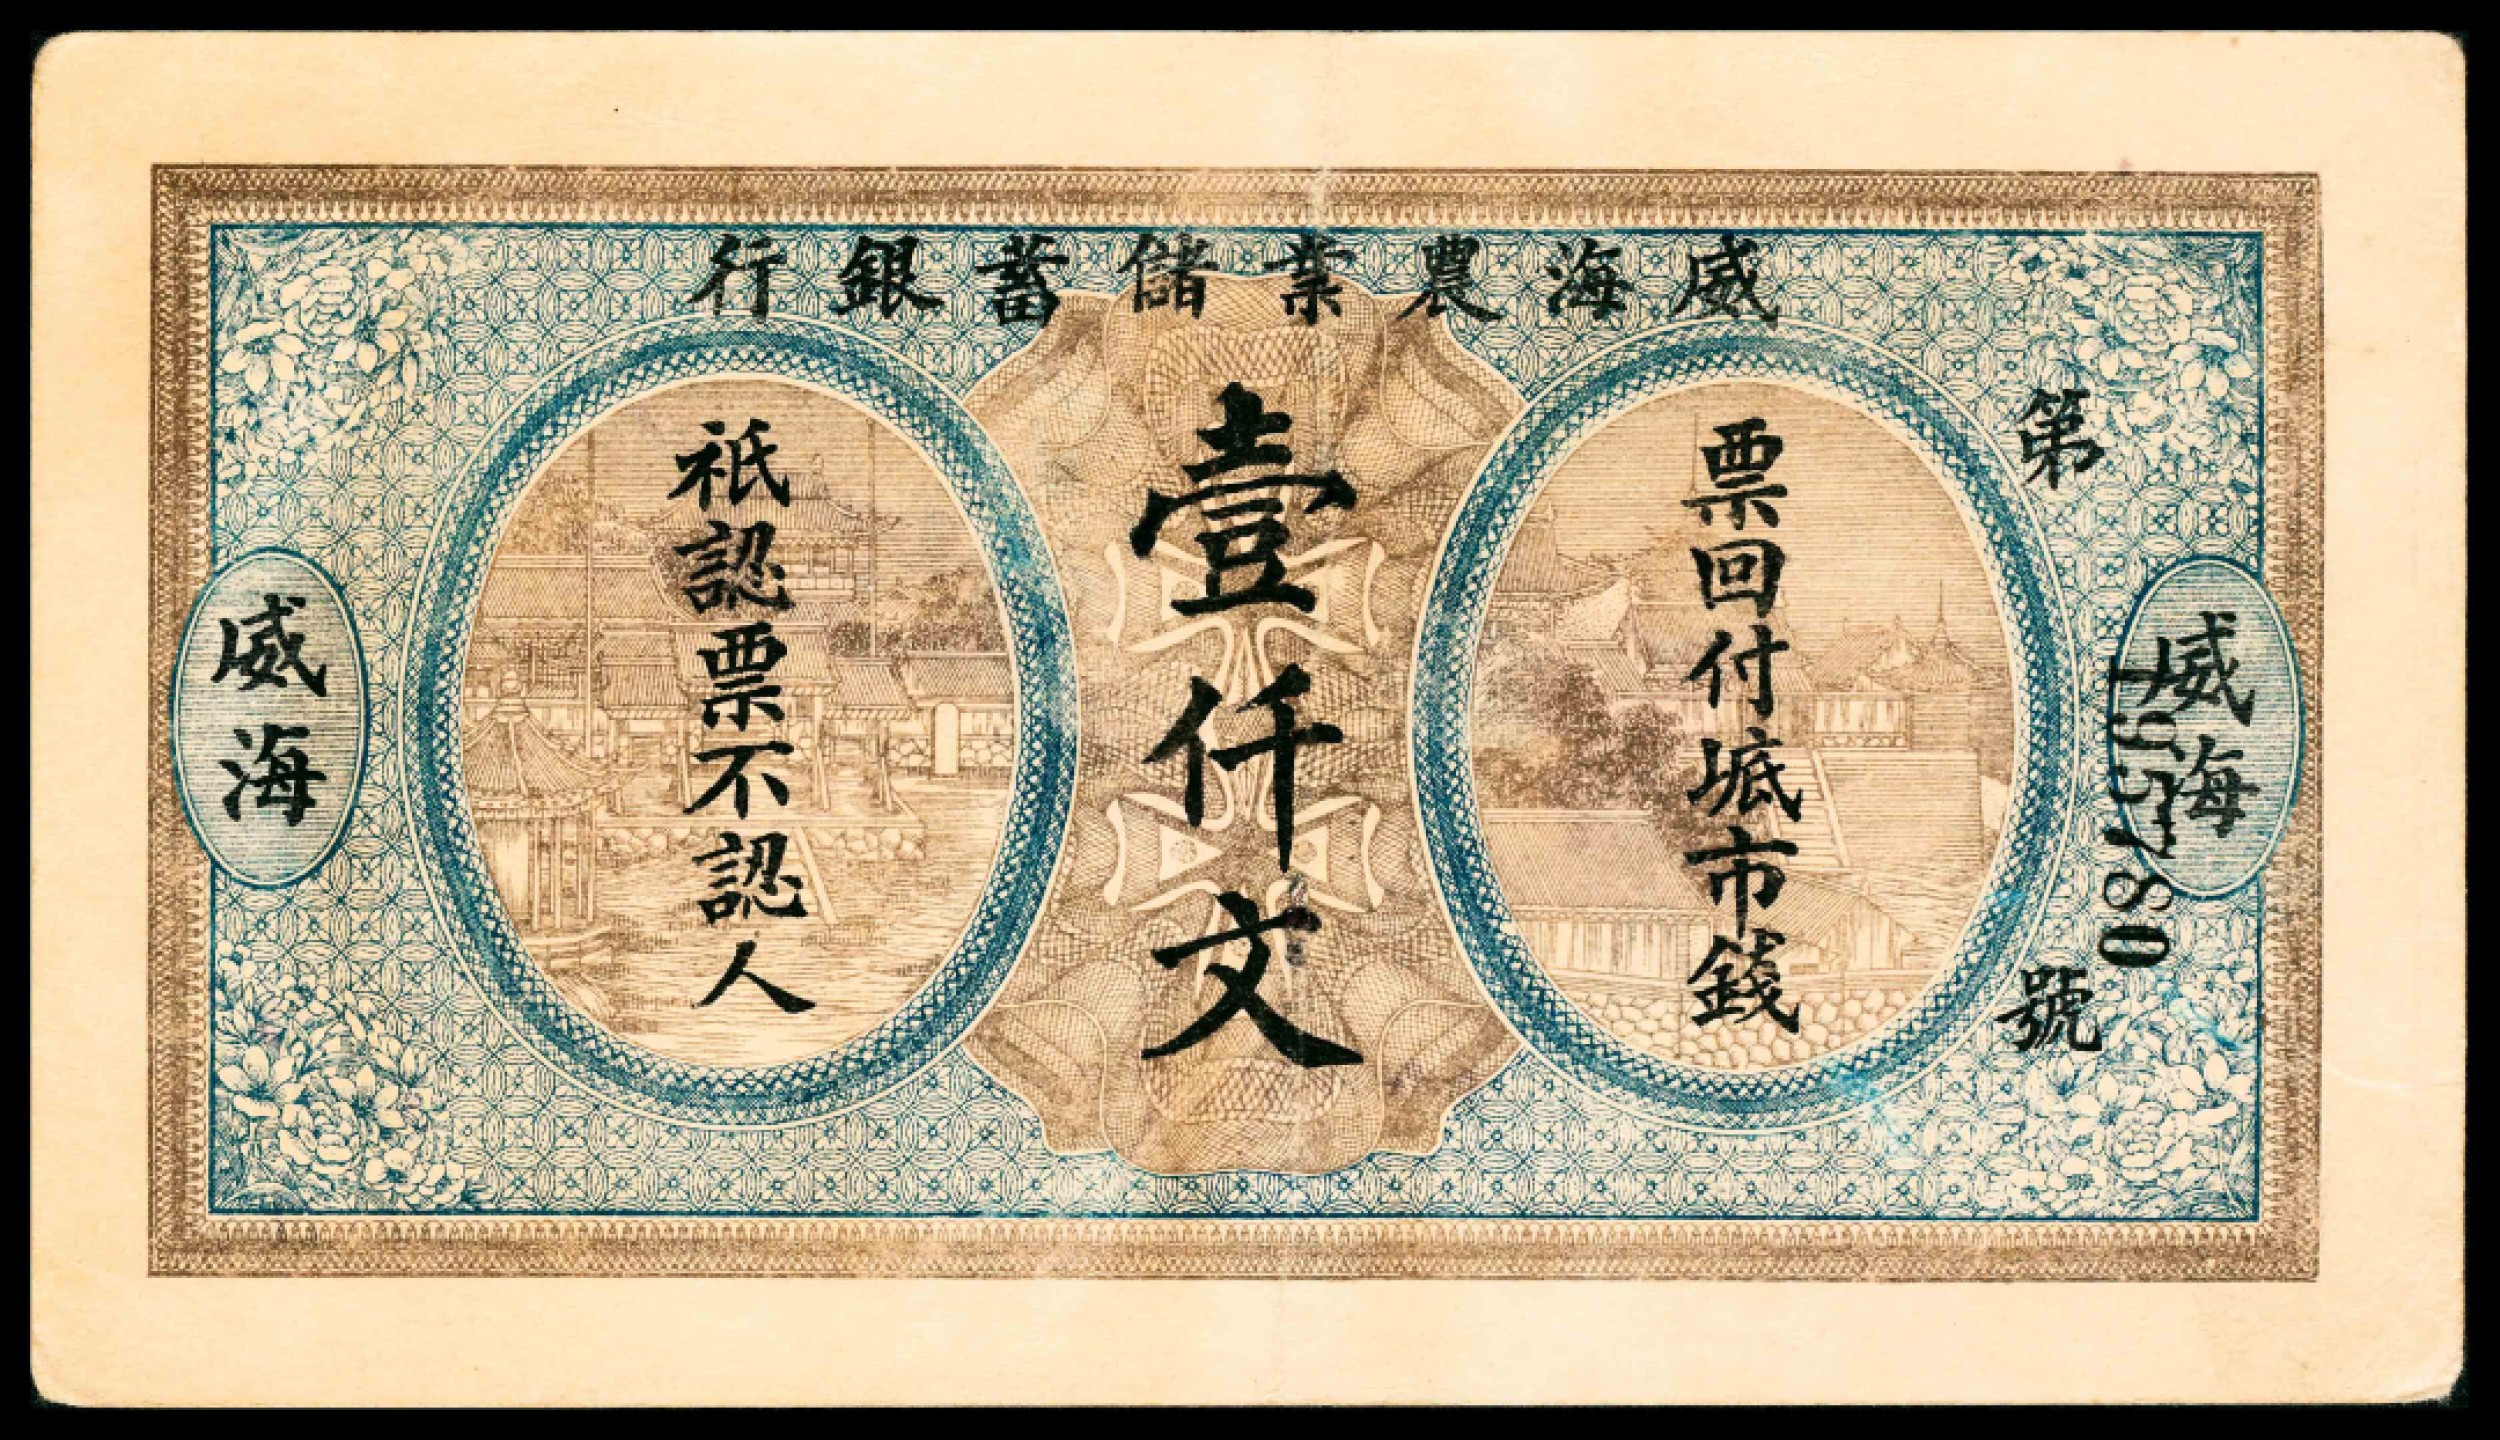 威海農業儲蓄銀行
第195780號
威海
票回付坻市錢
壹仟文
祇認票不認人
威海